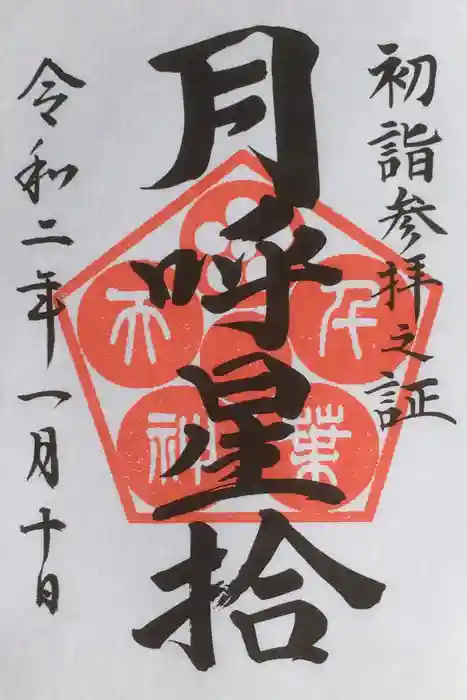 初詣参拝之証
月呼星拾
令和二年一月十日
千葉天神